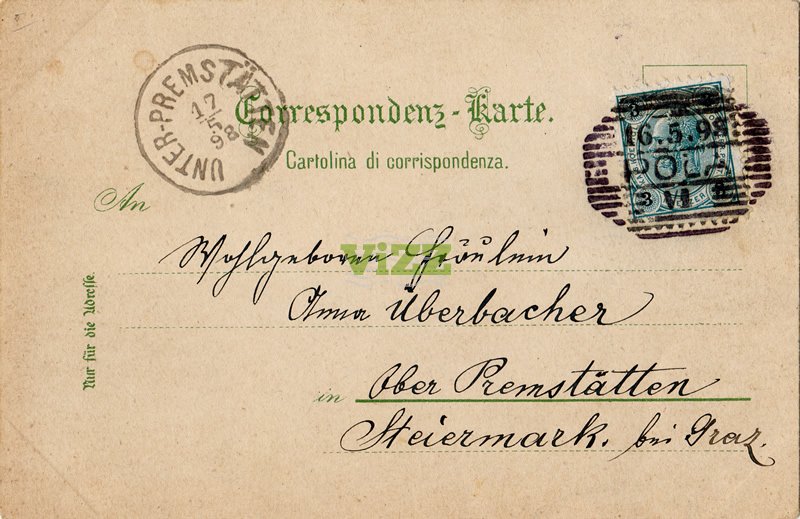 UNTER-PREMSTÄTTEN
17
5
98
Correspondenz-Karte.
Cartolina di corrispondenza.
16.5.98
POLA
VI
3
3
An
Wohlgeboren Fräulein
ViZZ
Anna Überbacher
in Ober Premstätten
Steiermark. bei Graz.
Nur für die Adresse.